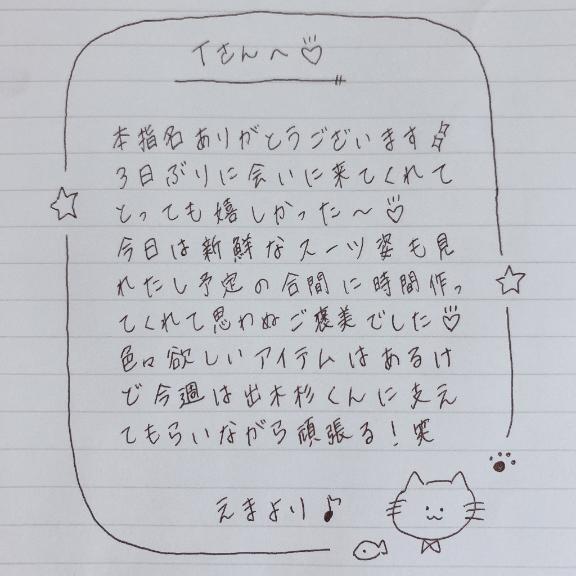 Tさんへ♡
本指名ありがとうございます
3日ぶりに会いに来てくれて
とっても嬉しかった〜♡
今日は新鮮なスーツ姿も見
れたし予定の合間に時間作っ
てくれて思わぬご褒美でした♡
色々欲しいアイテムはあるけ
ど今週は出木杉くんに支え
てもらいながら頑張る！笑
えまより♪